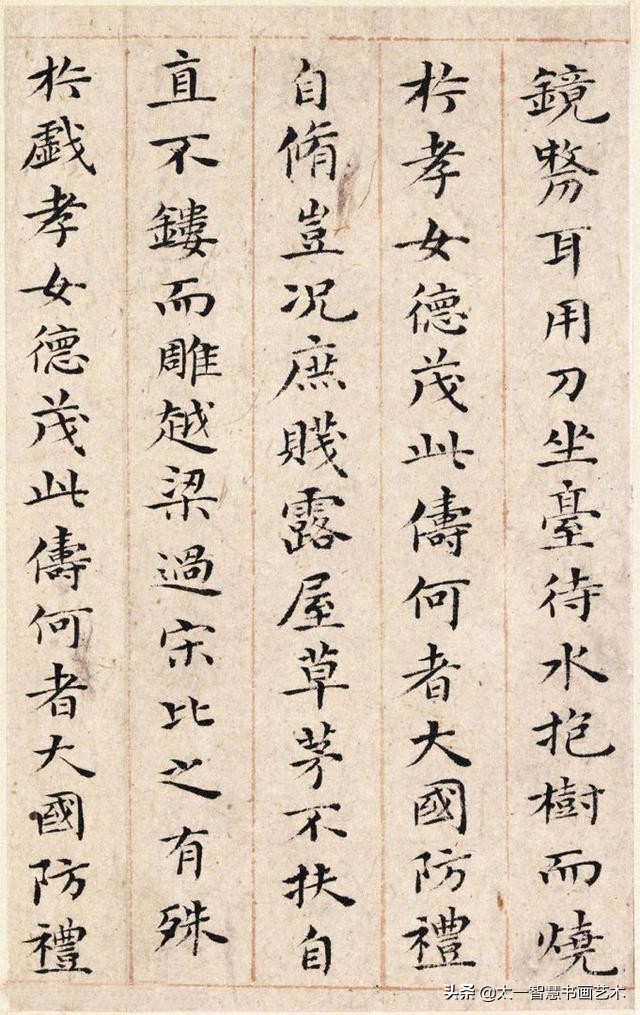 鏡剺耳用刀坐臺待水抱樹而燒
扵孝女德茂此儔何者大國防禮
自脩豈况庶賤露屋草茅不扶自
直不鏤而雕越梁過宋比之有殊
扵戲孝女德茂此儔何者大國防禮
头条 @太一智慧书画艺术